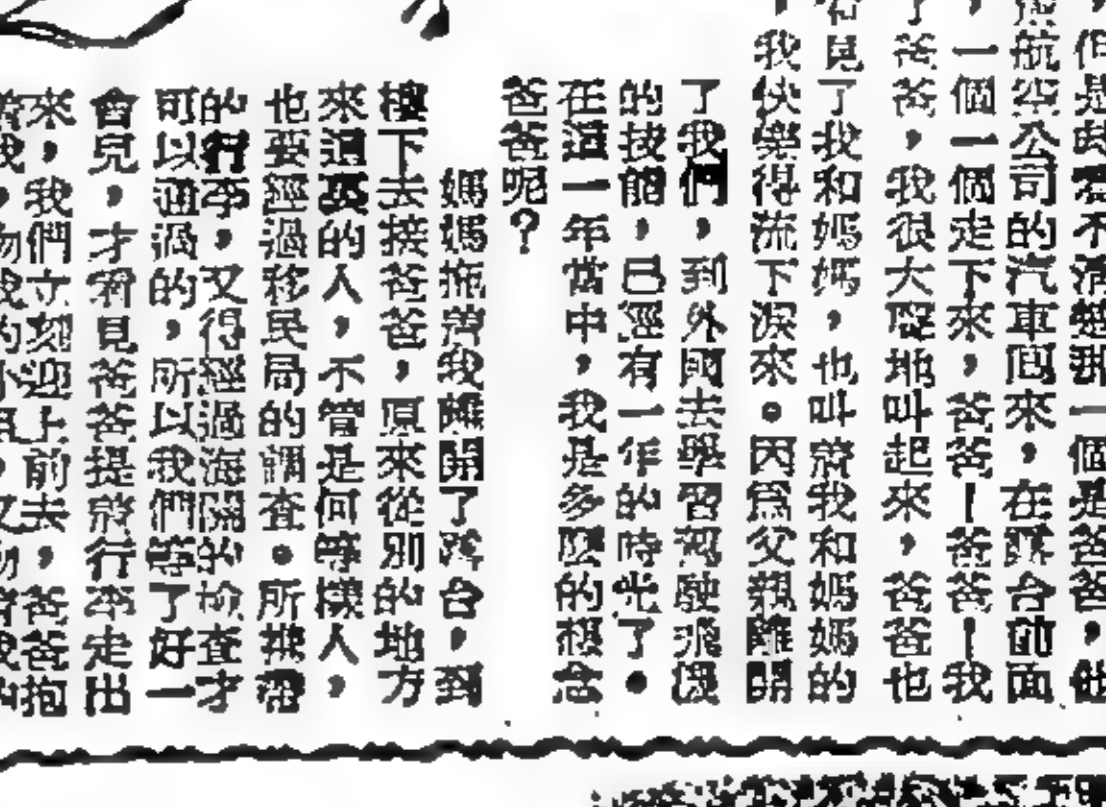 但是時看不清楚那一個是爸爸，他
航空公司的汽車回來，在露台前面
，一個一個走下來，爸爸—爸爸—我
了爸爸，我很大聲地叫起來，爸爸也
看見了我和媽媽，也叫着我和媽媽的
，我快樂得流下淚來。因爲父親離開
了我們，到外國去學習駕駛飛機
的技能，已經有一年的時光了。
在這一年當中，我是多麼的想念
爸爸呢？
媽媽拖着我離開了露台，到
樓下去接爸爸，原來從別的地方
來這裏的人，不管是何等樣人，
也要經過移民局的調查。所携帶
的行李，又得經過海關的檢查才
可以通過的，所以我們等了好一
會兒，才看見爸爸提着行李走出
來，我們立刻迎上前去，爸爸抱
着我，吻我的小